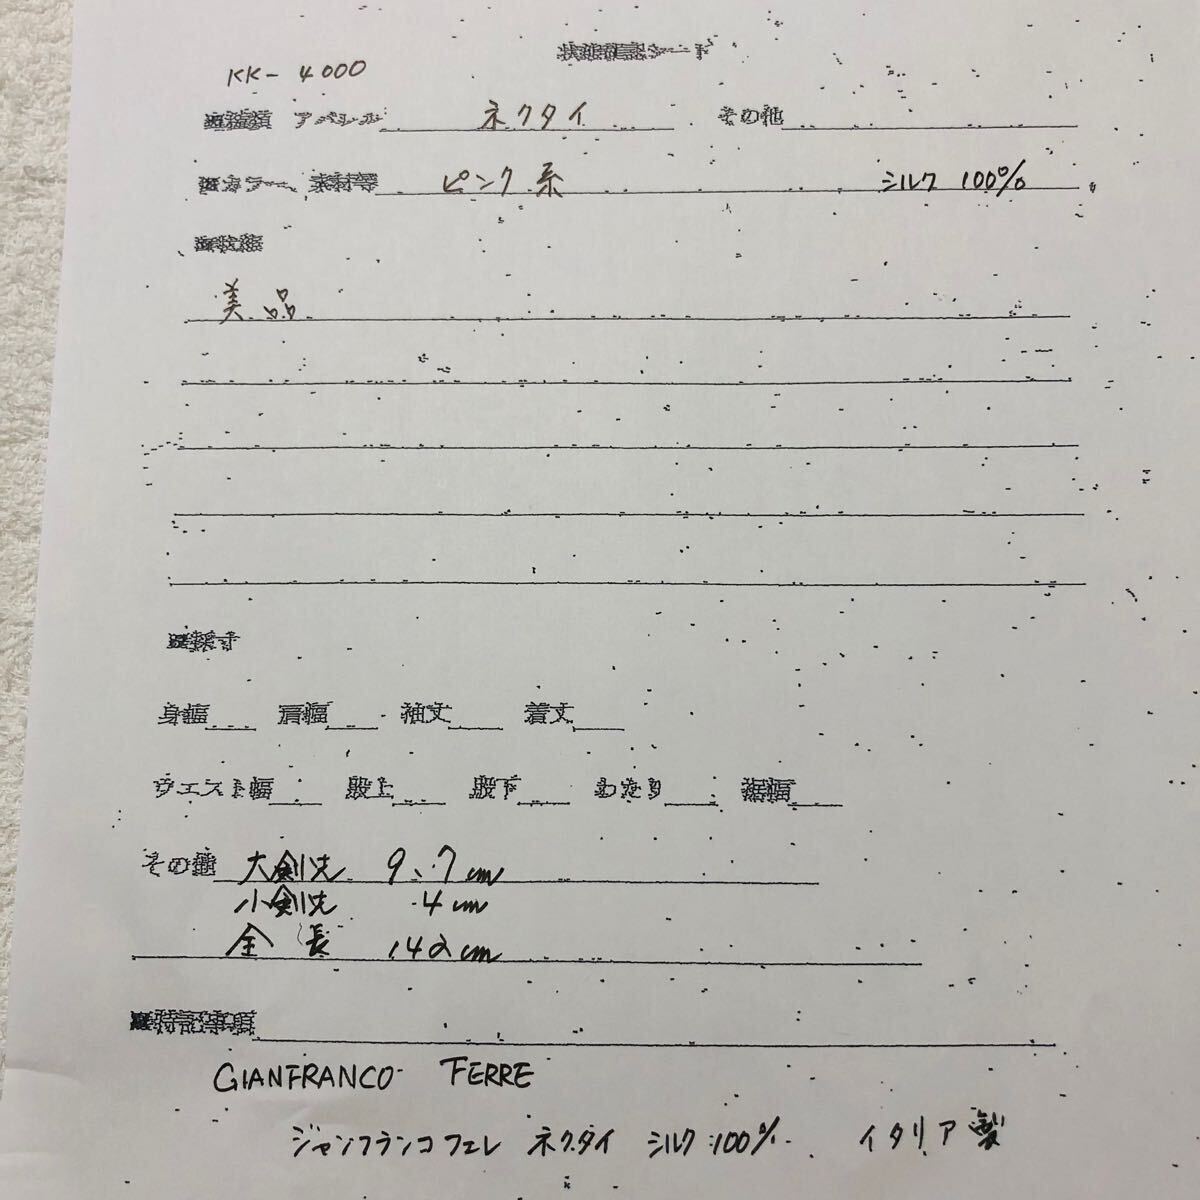 状態確認シート
KK-4000
■種類 アパレル ネクタイ その他
■カラー、素材等 ピンク系 シルク 100%
■状態
美品
■採寸
身幅 肩幅 袖丈 着丈
ウエスト幅 股上 股下 わたり 裾幅
その他 大剣先 9.7cm
小剣先 4cm
全長 142cm
■特記事項
GIANFRANCO FERRE
ジャンフランコフェレ ネクタイ シルク100% イタリア製